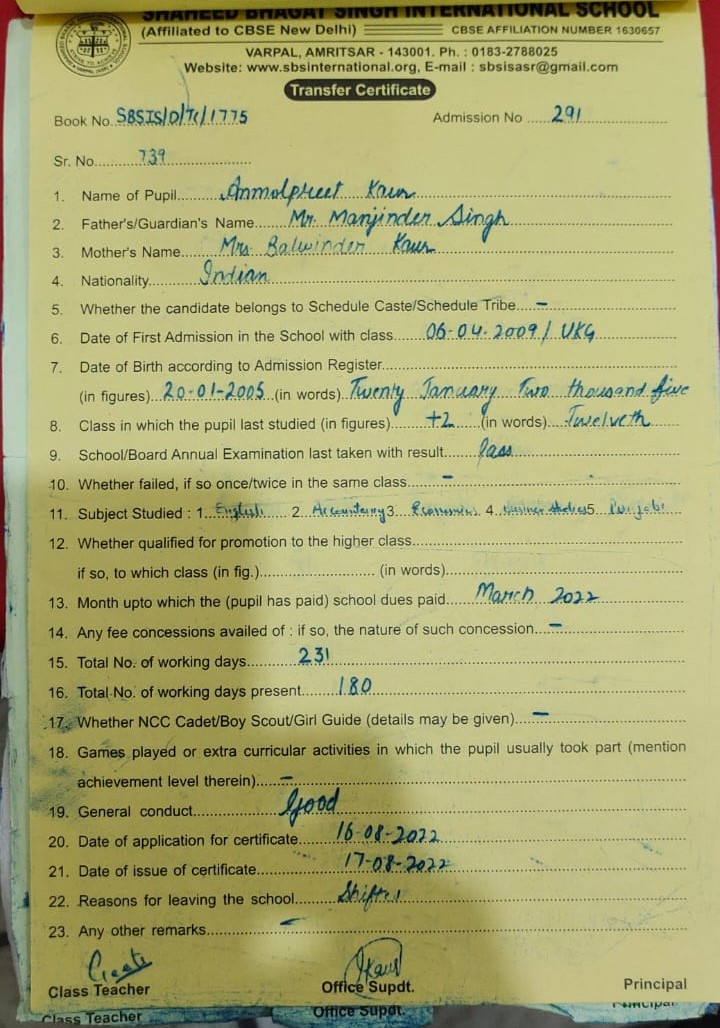 SHAHEED BHAGAT SINGH INTERNATIONAL SCHOOL
(Affiliated to CBSE New Delhi) CBSE AFFILIATION NUMBER 1630657
VARPAL, AMRITSAR - 143001. Ph. : 0183-2788025
Website: www.sbsinternational.org, E-mail : sbsisasr@gmail.com
Transfer Certificate
Book No. SBSIS/D/TC/1775 Admission No 291
Sr. No. 739
1. Name of Pupil Anmolpreet Kaur
2. Father's/Guardian's Name Mr. Manjinder Singh
3. Mother's Name Mrs Balwinder Kaur
4. Nationality Indian
5. Whether the candidate belongs to Schedule Caste/Schedule Tribe –
6. Date of First Admission in the School with class 06-04-2009/ UKG
7. Date of Birth according to Admission Register
(in figures) 20-01-2005 (in words) Twenty January Two thousand five
8. Class in which the pupil last studied (in figures) +2 (in words) Twelveth
9. School/Board Annual Examination last taken with result Pass
10. Whether failed, if so once/twice in the same class –
11. Subject Studied : 1. English 2. Accountancy 3. Economics 4. Business Studies 5. Punjabi
12. Whether qualified for promotion to the higher class
if so, to which class (in fig.) (in words)
13. Month upto which the (pupil has paid) school dues paid March 2022
14. Any fee concessions availed of : if so, the nature of such concession –
15. Total No. of working days 231
16. Total No. of working days present 180
17. Whether NCC Cadet/Boy Scout/Girl Guide (details may be given) –
18. Games played or extra curricular activities in which the pupil usually took part (mention
achievement level therein) –
19. General conduct Good
20. Date of application for certificate 16-08-2022
21. Date of issue of certificate 17-08-2022
22. Reasons for leaving the school
23. Any other remarks –
Kaur
Class Teacher Office Supdt. Principal
Class Teacher Office Supdt. Principal